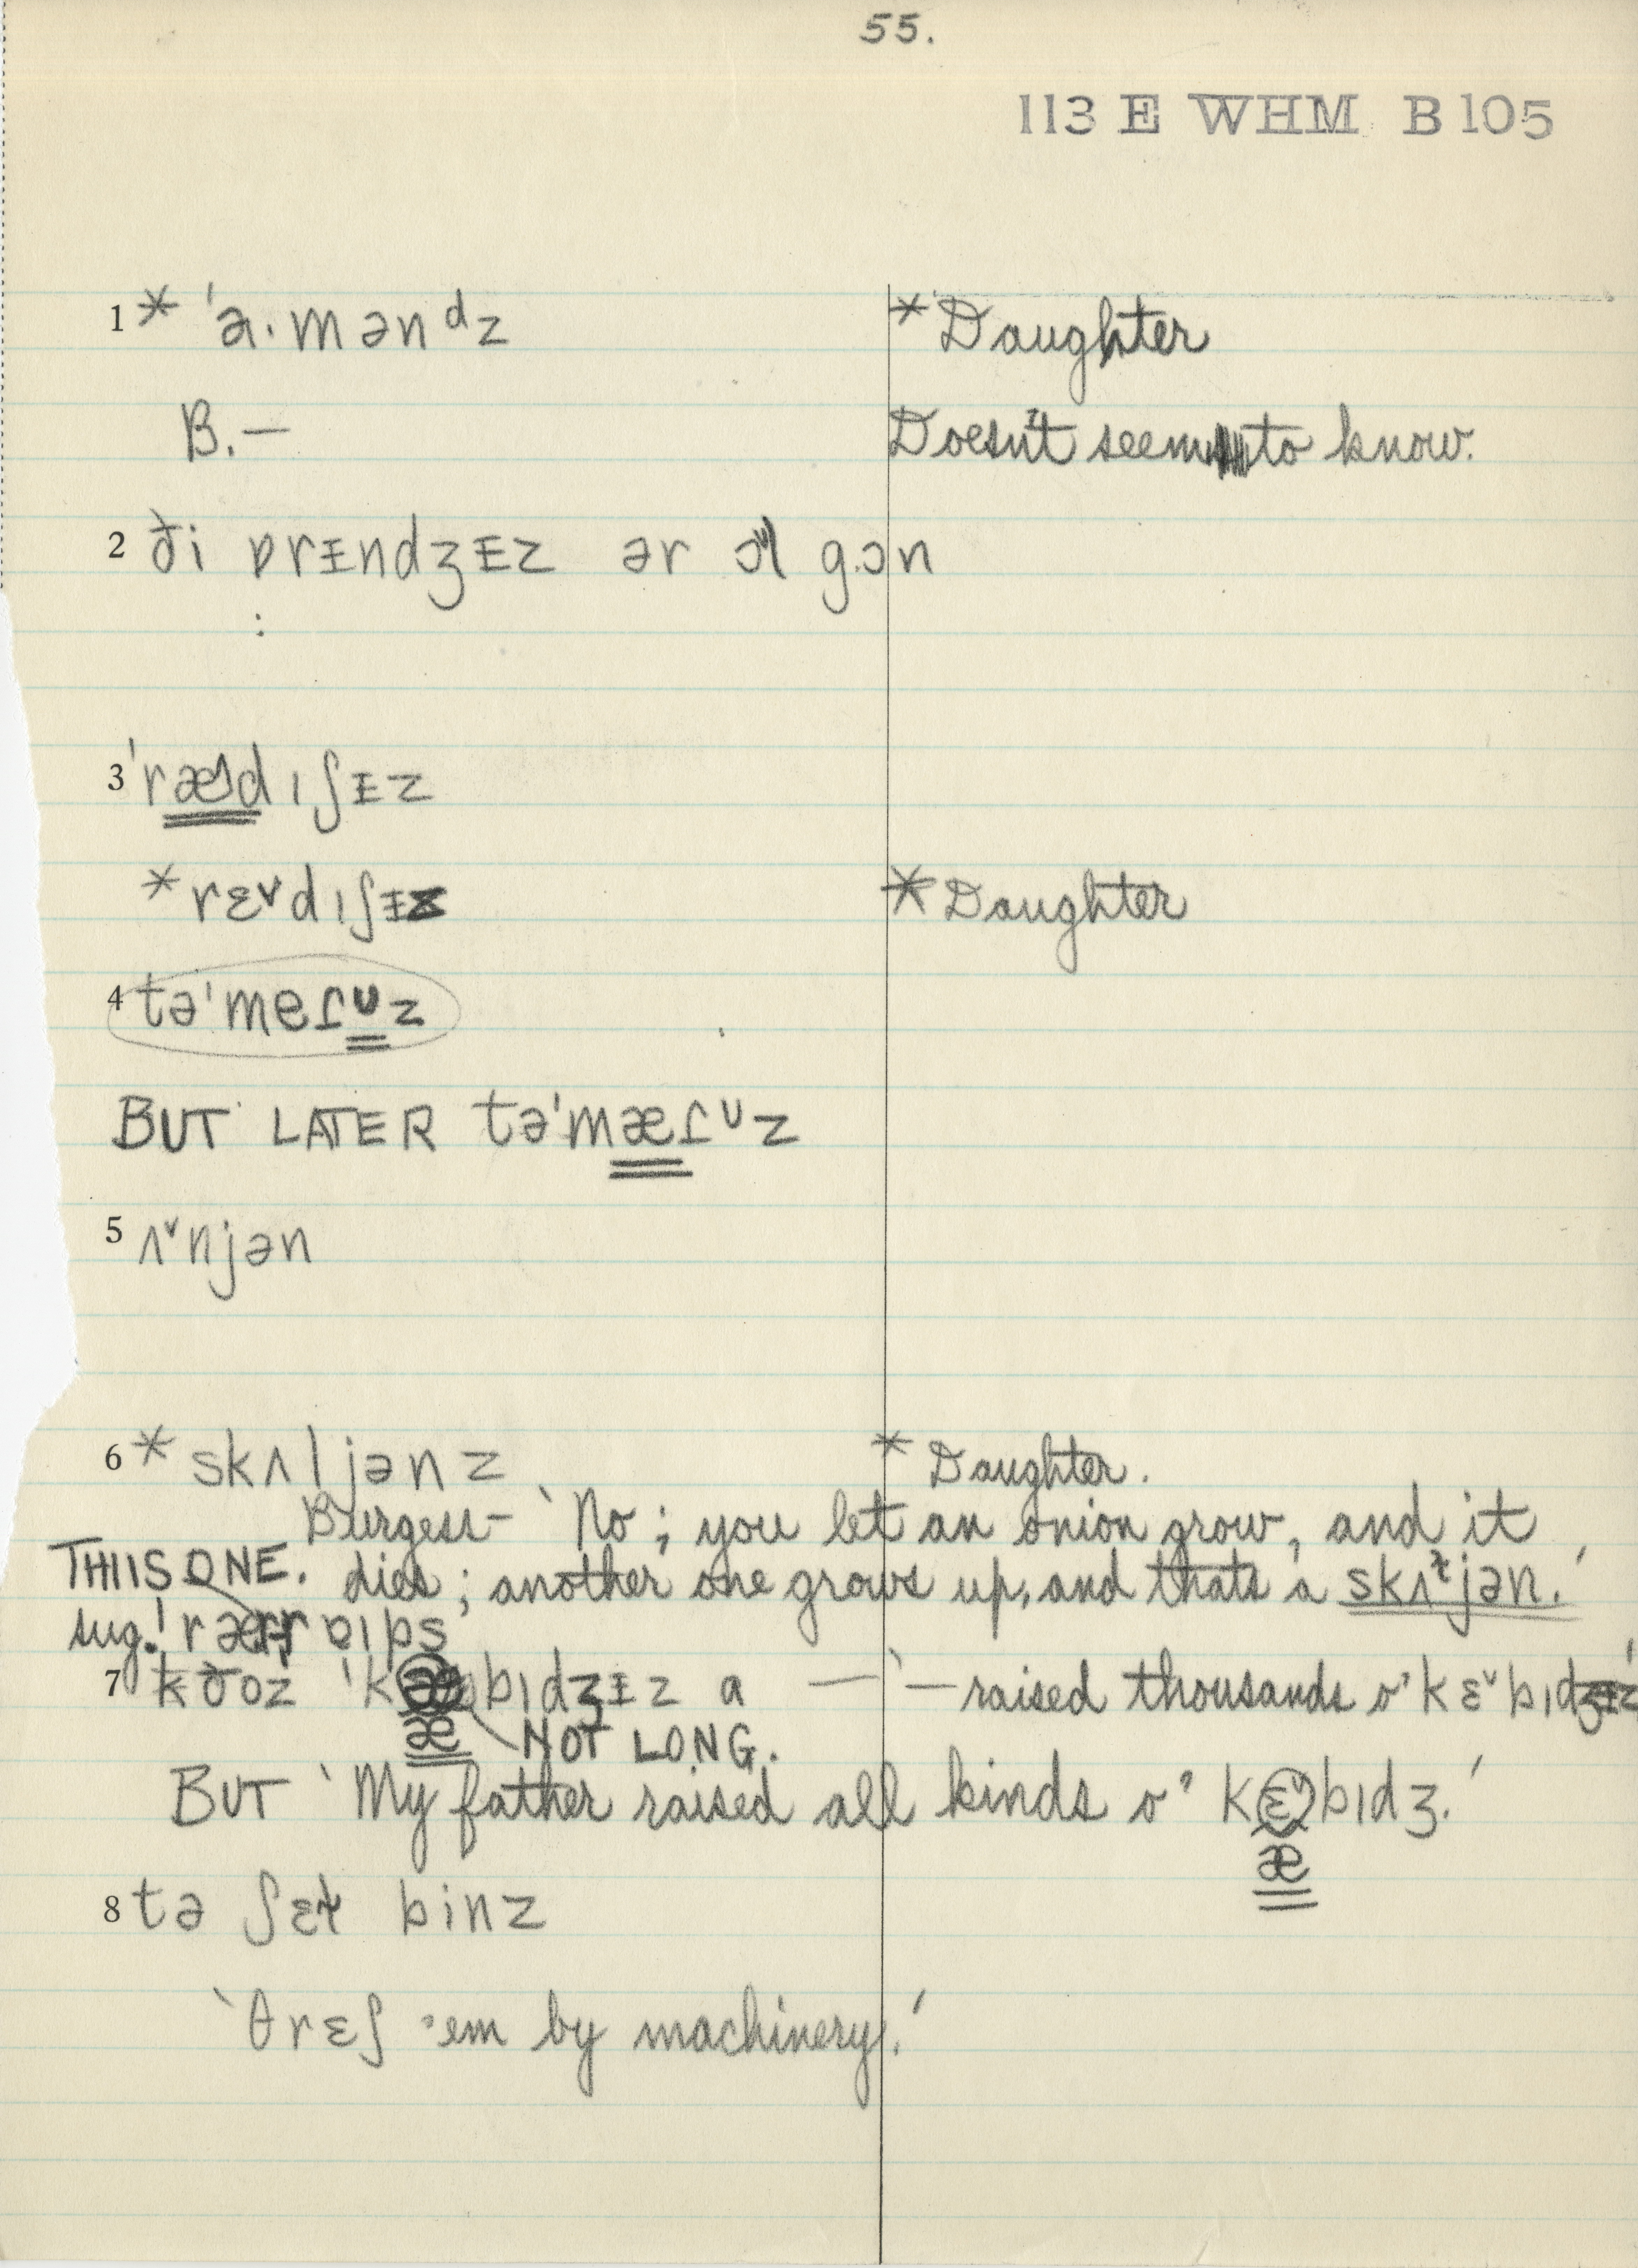 55.
113 E WHM B 105
1 * ˈa·mənᵈz * Daughter
B.— Doesn't seem to know.
2 ði ɒrɪndʒɪz ər ɔl gɔn
3 ˈræ^dɪʃɪz
* rɛ˅dɪʃɪz * Daughter
4 təˈmeɾᶷz
BUT LATER təˈmæɾᶷz
5 ʌ˅njən
6 * skʌljənz * Daughter.
Burgess— ‵No; you let an onion grow, and it
THIS ONE. dies; another one grows up, and that's a skʌɫjən.′
sug.!
7 bɪdʒɪz a — ‵—raised thousands o' kɛ˅bɪdʒɪz′
æ NOT LONG.
BUT ‵My father raised all kinds o' kɛ˅bɪdʒ.′
æ
8 tə ʃɛɫ binz
‵θrɛʃ 'em by machinery.′